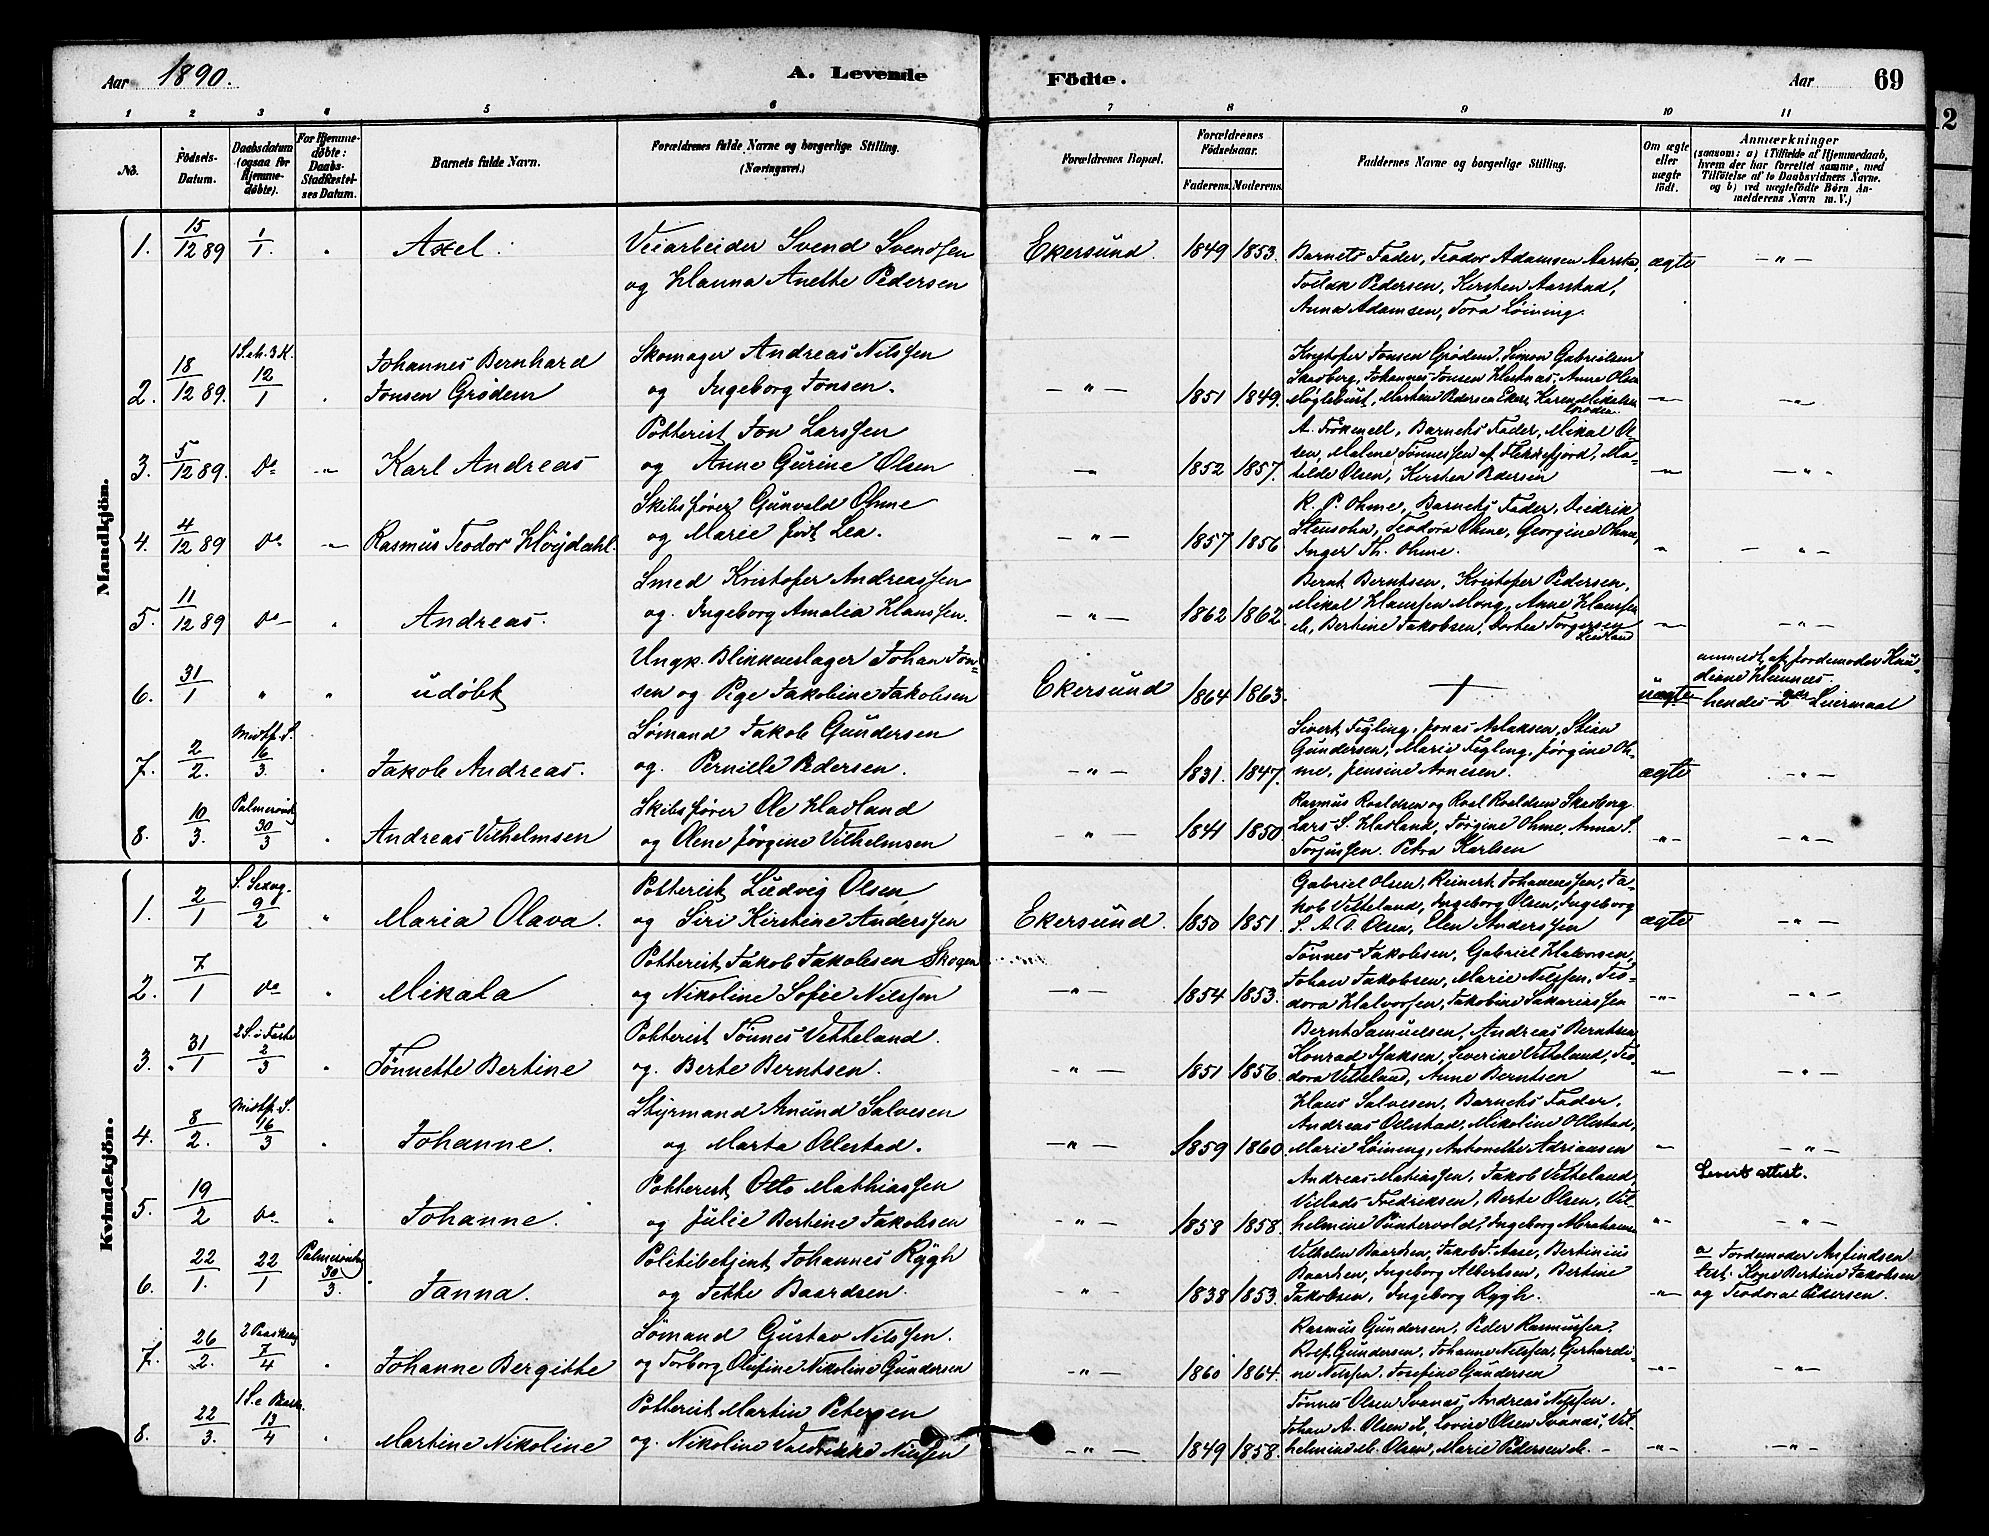 Aar 1890.
A. Levende
Födte.
Aar
69
1 2 3 4 5 6 7 8 9 10 11
No.
Födsels-Datum.
Daabsdatum (ogsaa for Hjemmedöbte).
For Hjemmedöbte: Daabs-Stadfæstelses Datum.
Barnets fulde Navn.
Forældrenes fulde Navne og borgerlige Stilling. (Næringsvei.)
Forældrenes Bopæl.
Forældrenes Födselsaar.
Faderens. Moderens.
Faddernes Navne og borgerlige Stilling.
Om ægte eller uægte födt.
Anmærkninger
(saasom: a) i Tilfælde af Hjemmedaab, hvem der har forrettet samme, med Tilföielse af to Daabsvidners Navne. og b) ved uægtefödte Börn Anmelderens Navn m. V.)
Mandkjön.
1. 15/12 89 1/1 " Axel. Veiarbeider Svend Svendsen
og Hanna Anette Pedersen
Ekersund. 1849 1853. Barnets Fader, Teodor Adamsen Aarstad,
Pedersen, Kirsten Aarstad,
Anna Adamsen, Tora Löining.
ægte — " —
2. 18/12 89. 1 S. eh. 3 K. 12/1 " Johannes Bernhard
Jonsen Grødem
Skomager Andreas Nilssen
og Ingeborg Jonsen.
— " — 1851 1849. Kristofer Jonsen Grødem, Simon Gabrielsen
Skadberg, Johannes Jonsen Hestnæs, Anne Olsen
Møglebust, Martine Pedersen Eker, Karen Mikalsen
Grødem.
3. 5/12 89. do — " — Karl Andreas
Potterist Jon Larssen
og Anne Gurine Olsen
1852 1857. A. Frøkenell, Barnets Fader, Mikal Ol-
sen, Malene Tønnessen af Flekkefjord, Ma-
tilde Olsen, Kirsten Pedersen
4. 4/12 89 do — " — Rasmus Teodor Høydahl.
Skibsfører Gunvald Ohme
og Marie født Lea.
— " — 1857 1856. R. P. Ohme, Barnets Fader, Didrik
Stensohn, Teodora Ohme, Georgine Ohme,
Inger Th. Ohme.
5. 11/12 89 do — " Andreas.
Smed Kristofer Andreassen
og Ingeborg Amalia Hanssen.
— " — 1862 1862. Bernt Berntsen, Kristofer Pedersen,
Mikal Hanssen Mong, Anne Hanssen
ib, Bertine Jakobsen, Dorte Torgersen
Leidland
6. 31/1 " " udøbt
Ungk. Blikkenslager Johan Jon-
sen og Pige Jakobine Jakobsen
Ekersund 1864 1863. +
uægte
anmeldt af Jordemoder Knu-
diane Hamnes.
hendes 2det Leiermaal
7. 2/2. Midtf. S. 16/3 " Jakob Andreas.
Sømand Jakob Gundersen
og Pernille Pedersen.
— " — 1831. 1847. Sivert Tegling, Jonas Aslaksen, Stian
Gundersen, Marie Tegling, Jørgine Oh-
me, Jensine Arnesen.
ægte — " —
8. 10/3. Palmesöndag 30/3 " Andreas Vilhelmsen
Skibsfører Ole Hadland
og Olene Jørgine Vilhelmsen
— " — 1841 1850. Rasmus Roaldsen og Roal Roaldsen Skadberg.
Lars S. Hadland, Jørgine Ohme, Anna S.
Torjussen. Petra Karlsen
Kvindekjön.
1. 2/1 S. Sexag. 9/2 " Maria Olava.
Potterist Ludvig Olsen,
og Siri Kirstine Anderssen
Ekersund. 1850 1851. Gabriel Olsen, Reinert Johannessen, Ja-
kob Vetteland, Ingeborg Olsen, Ingeborg
S. A. P. Olsen, Elen Anderssen
ægte — " —
2. 7/1 do " Mikala
Potterist Jakob Jakobsen Skogen
og Nikoline Sofie Nilssen
— " — 1854 1853. Tønnes Jakobsen, Gabriel Halvorsen,
Johan Jakobsen, Marie Nilssen, Teo-
dora Halvorsen, Jakobine Sakariassen
3. 31/1 2 S. i Faste 2/3 " Tønnette Bertine
Potterist Tönnes Vetteland.
og Berte Berntsen.
— " — 1851 1856. Bernt Samuelsen, Andreas Berntsen
Konrad Isaksen, Severine Vetteland, Teo-
dora Vetteland, Anne Berntsen
4. 8/2. Midtf. S. 16/3 " Johanne.
Styrmand Amund Salvesen
og Marta Ollestad.
— " — 1859 1860. Hans Salvesen, Barnets Fader,
Andreas Ollestad, Mikoline Ollestad,
Marie Löining, Antonette Adriansen
5. 19/2 do " Johanne.
Potterist Otto Mathiassen
og Julie Bertine Jakobsen
— " — 1858 1858. Andreas Matiassen, Jakob Vetteland,
Villads Fredriksen, Berte Olsen, Vil-
helmine Puntervold, Ingeborg Abrahamsen
Levert attest.
6. 22/1. 22/1 Palmesöndag 30/3. Janna.
Politibetjent Johannes Rygh
og Jette Baardsen.
— " — 1838 1853. Vilhelm Baardsen, Jakob J. Aase, Bertinius
Baardsen, Ingeborg Albertsen, Bertine
Jakobsen, Ingeborg Rygh.
a Jordemoder Anfindsen
test: Kone Bertine Jakobsen
og Teodora Pedersen.
7. 26/2. 2 Paaskedag 7/4 " Johanne Bergitte
Sømand Gustav Nilssen.
og Torborg Olufine Nikoline Gundersen
— " — 1860 1864. Rasmus Gundersen, Peder Rasmussen,
Rolf Gundersen, Johanne Nilssen, Gerhardi-
ne Nilssen, Josefine Gundersen
8. 22/3. 1 S. e Paask. 13/4 " Martine Nikoline
Potterist Martin Petersen
og Nikoline Nilssen
— " — 1849 1858. Tønnes Olsen Svanæs, Andreas Nilssen.
Johan A. Olsen ib, Lovise Olsen Svanæs, Vil-
helmine Olsen, Marie Pedersen ib. —
12